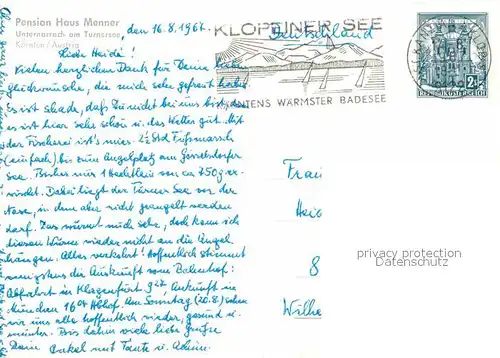 Pension Haus Menner
Unternarrach am Turnersee
Kärnten / Austria
den 16.8.1967.
Deutschland
KLOPEINER SEE
KÄRNTENS WÄRMSTER BADESEE
REPUBLIK ÖSTERREICH
2
Liebe Heidi!
Vielen herzlichen Dank für Deine lieben
glückwünsche, die mich sehr gefreut haben.
Es ist schade, daß Du nicht bei uns bist, denn
es ist hier sehr schön u. das Wetter gut. Mit
der Fischerei ist's mies. 2½ Std Fußmarsch
(einfach) bis zum Angelplatz am Gösselsdorfer
See. Bisher nur 1 Hechtlein von ca 750 gr er-
wischt. Dabei liegt der Turner See vor der
Nase, in dem aber nicht geangelt werden
darf. Das wurmt mich sehr, doch kann ich
diesen Wurm wieder nicht an die Angel
hängen. Alles verkehrt! Hoffentlich stimmt
wenigstens die Auskunft vom Bahnhof:
Abfahrt in Klagenfurt 9 27, Ankunft in
München 16 04 Hbhof. Am Sonntag (20.8.) sehen
wir uns alle hoffentlich wieder, gesund u.
munter. Bis dahin viele liebe Grüße
Dein Onkel mit Tante u.
Frau
Heid
8
Wilhe
privacy protection
Datenschutz